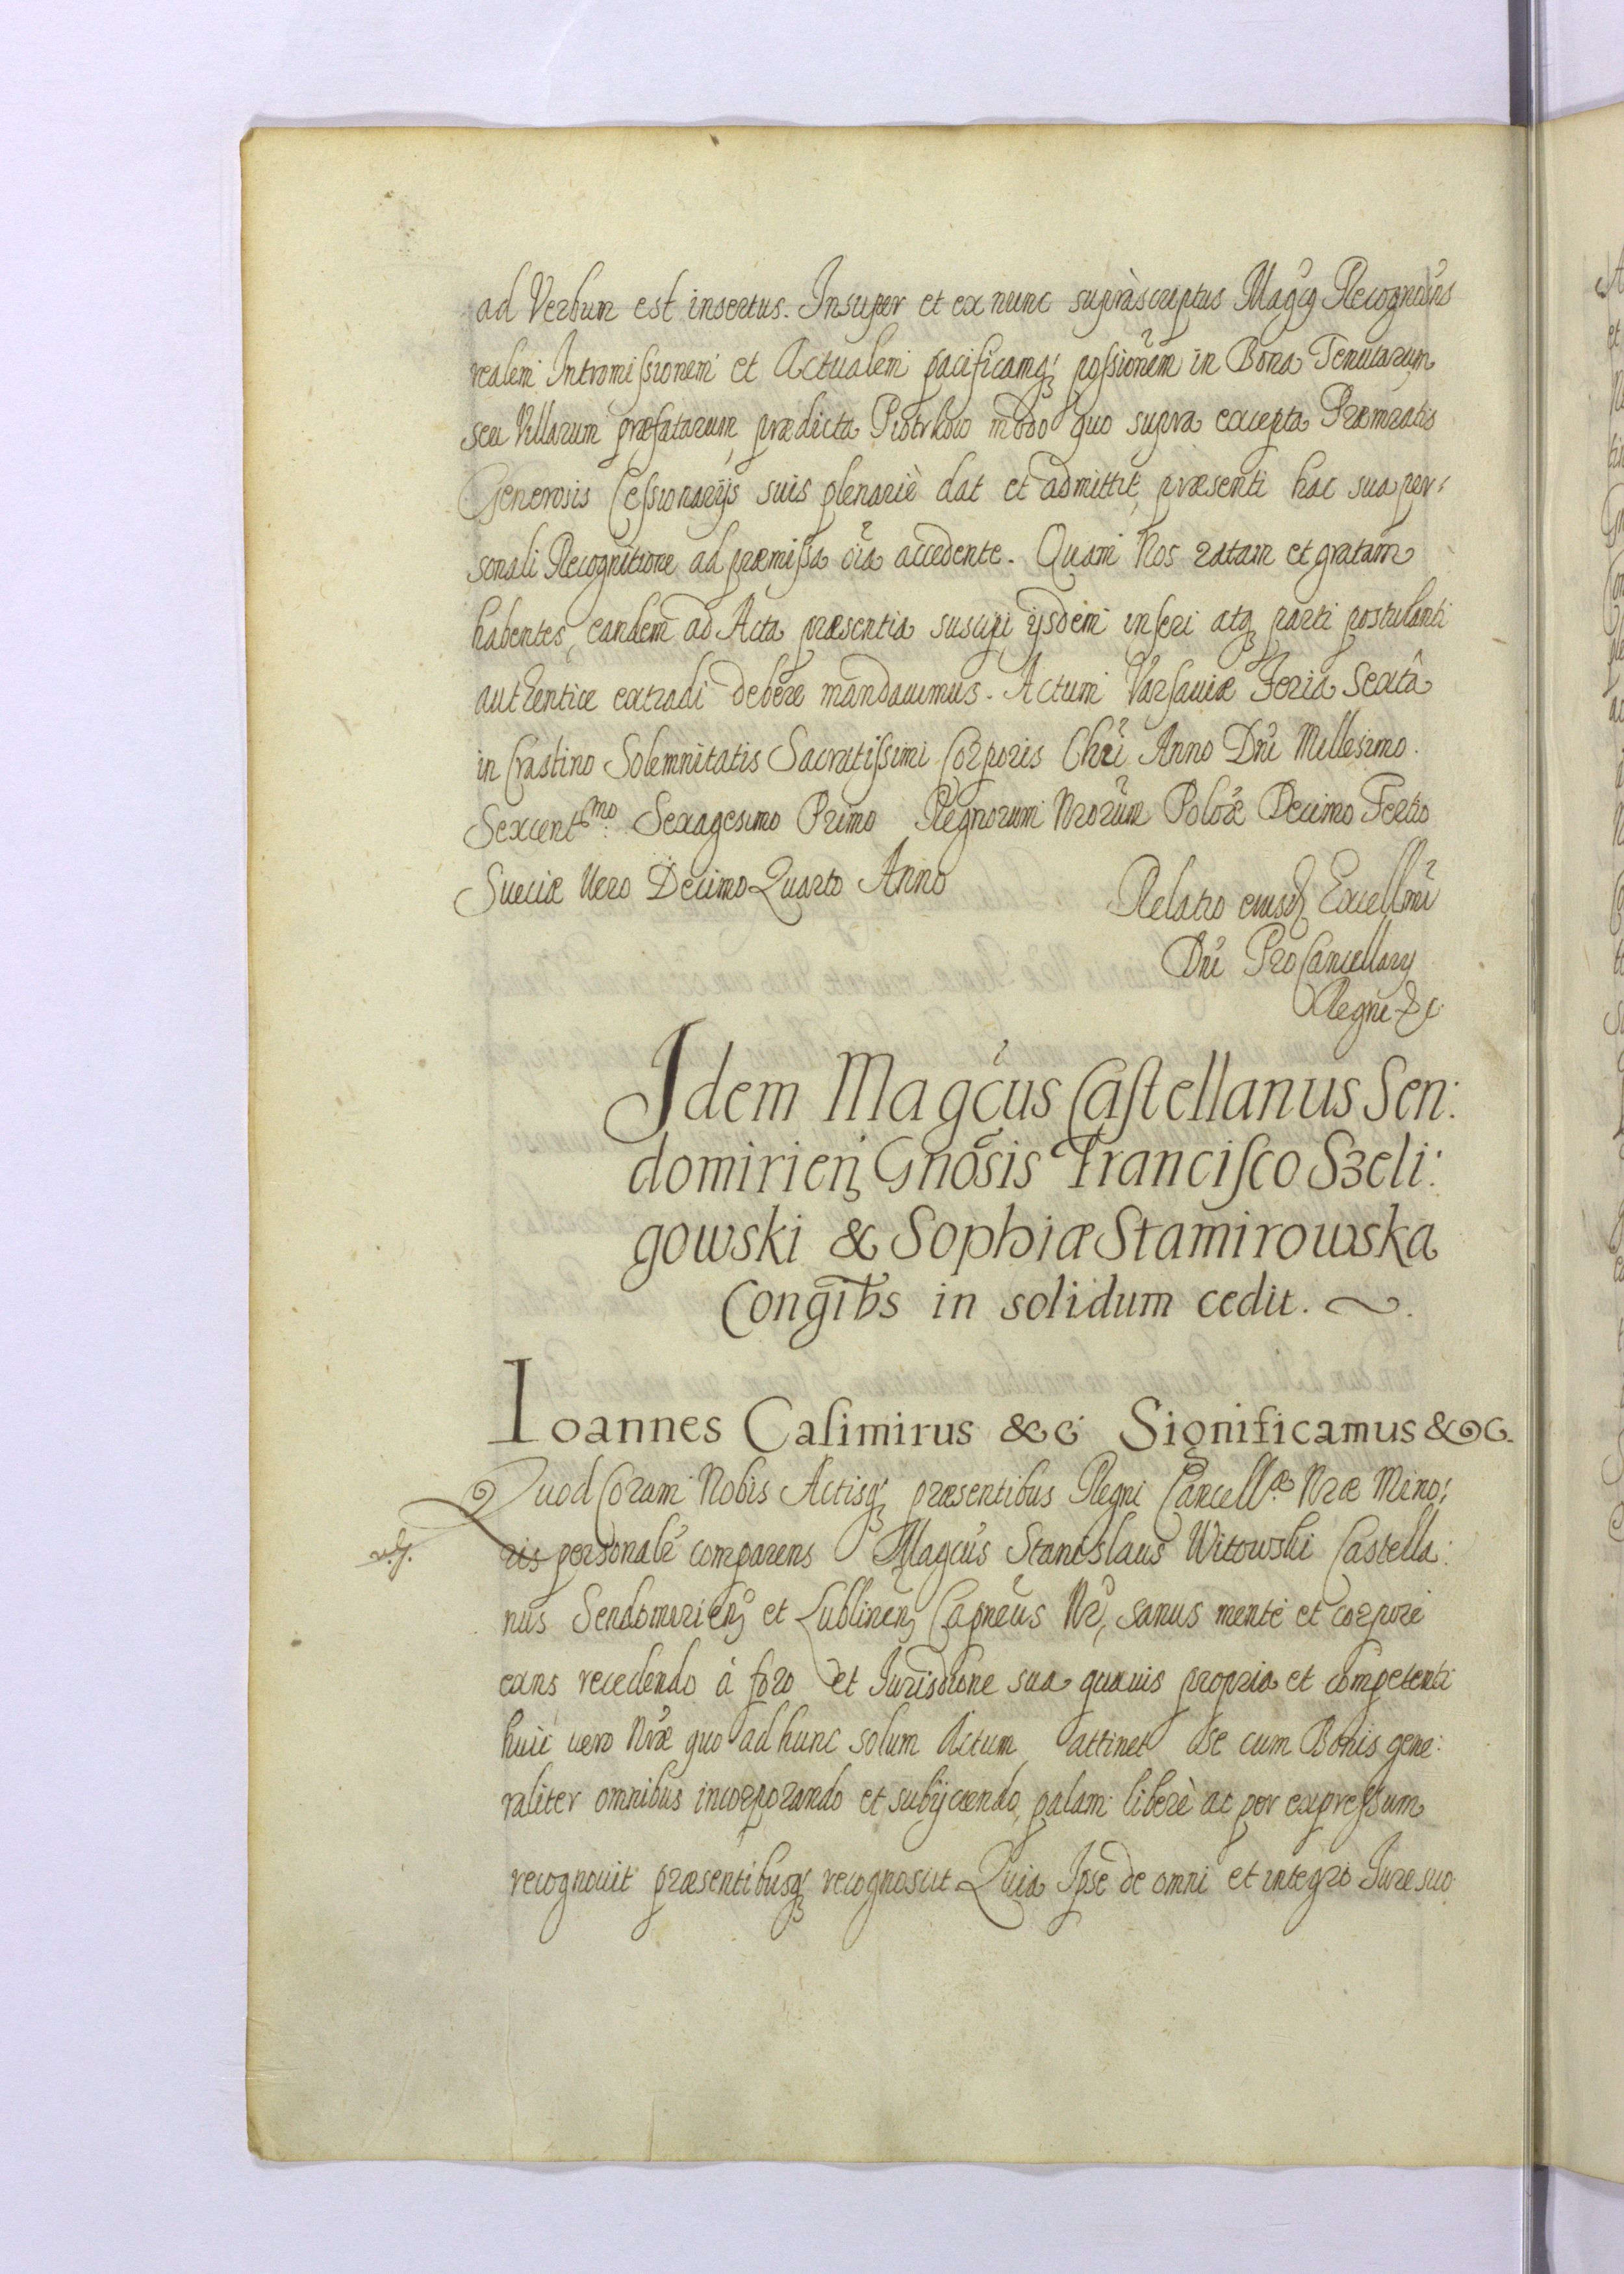 ad Verbum est insertus. Insuper et ex nunc supràscriptus Magcq Recognoscens
realem Intromissionem et Actualem pacificamq; possionem in Bona Tenutarum
seu Villarum præfatarum, prædicta Piotrkow modo quo supra excepta Præmratis
Generosis Cessionarijs suis plenariè dat et admittit, præsenti hac sua per:
sonali Recognitione ad præmissa oĩa accedente. Quam Nos ratam et gratam
habentes, eandem ad Acta præsentia suscipi ijsdem inseri atq; parti postulanti
authentice extradi debere mandauimus. Actum Varsauiæ Feria Sexta
in Crastino Solemnitatis Sacratissimi Corporis Chri Anno Dni Millesimo.
Sexcentmo: Sexagesimo Primo Regnorum Nrorum Poloæ Decimo Tertio
Sueciæ Vero Decimo Quarto Anno
Relatio eiusd Excellmi
Dni ProCancellarij
Regni &c
Idem Magcus Castellanus Sen:
domirien Gnosis Francisco Szeli:
gowski & Sophiæ Stamirowska
Congibs in solidum cedit.
Ioannes Casimirus &c: Significamus &c.
Quod Coram Nobis Actisq; præsentibus Regni Cancellæ Nræ Mino:
ris personalr comparens Magcus Stanislaus Witowski Castella:
nus Sendomirien et Lublinen Capneus Nr, sanus mente et corpore
exns recedendo à foro et Jurisdione sua quauis propria et competenti
huic vero Nræ quo ad hunc solum Actum attinet se cum Bonis gene:
raliter omnibus incorporando et subijciendo, palam liberè ac per expressum
recognouit præsentibusq; recognoscit Quia Ipse de omni et integro Jure suo